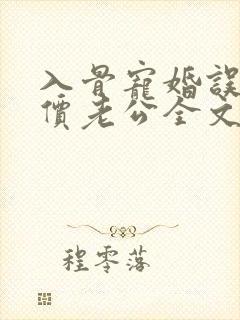 入骨寵婚誤
價老公全文
程零落